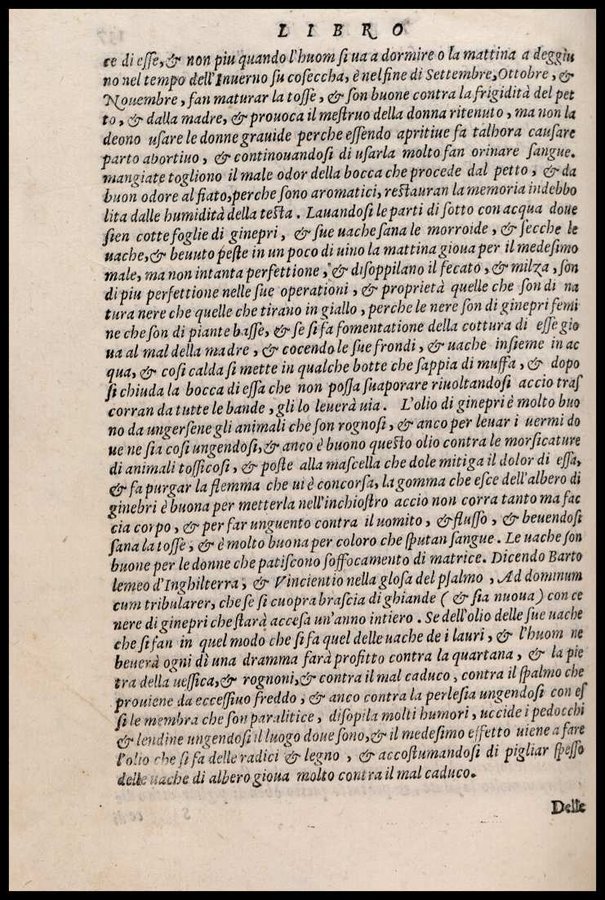 LIBRO
ce di esse, & non piu quando l'huom si va a dormire o la mattina a deggiu
no nel tempo dell'Inuerno su coseccha, è nel fine di Settembre, Ottobre, &
Nouembre, fan maturar la tosse, & son buone contra la frigidità del pet
to, & dalla madre, & prouoca il mestruo della donna ritenuto, ma non la
deono usare le donne grauide perche essendo apritiue fa talhora causare
parto abortiuo, & continouandosi di usarla molto fan orinare sangue.
mangiate togliono il male odor della bocca che procede dal petto, & da
buon odore al fiato, perche sono aromatici, restauran la memoria indebbo
lita dalle humidità della testa. Lauandosi le parti di sotto con acqua doue
sien cotte foglie di ginepri, & sue uache sana le morroide, & secche le
uache, & beuuto peste in un poco di uino la mattina gioua per il medesimo
male, ma non in tanta perfettione, & disoppilano il fecato, & milza, son
di piu perfettione nelle sue operationi, & proprietà quelle che son di na
tura nere che quelle che tirano in giallo, perche le nere son di ginepri femi
ne che son di piante basse, & se si fa fomentatione della cottura di esse gio
ua al mal della madre, & cocendo le sue frondi, & uache insieme in ac
qua, & cosi calda si mette in qualche botte che sappia di muffa, & dopo
si chiuda la bocca di essa che non possa suaporare riuoltandosi accio tras
corran da tutte le bande, gli lo leuerà uia. L'olio di ginepri è molto buo
no da ungersene gli animali che son rognosi, & anco per leuar i uermi do
ue ne sia cosi ungendosi, & anco è buono questo olio contra le morsicature
di animali tossicosi, & poste alla mascella che dole mitiga il dolor di essa,
& fa purgar la flemma che ui è concorsa, la gomma che esce dell'albero di
ginebri è buona per metterla nell'inchiostro accio non corra tanto ma fac
cia corpo, & per far unguento contra il uomito, & flusso, & beuendosi
sana la tosse, & è molto buona per coloro che sputan sangue. Le uache son
buone per le donne che patiscono soffocamento di matrice. Dicendo Barto
lemeo d'Inghilterra, & Vincientio nella glosa del psalmo, Ad dominum
cum tribularer, che se si cuopra brascia di ghiande (& sia nuoua) con ce
nere di ginepri che starà accesa un'anno intiero. Se dell'olio delle sue uache
che si fan in quel modo che si fa quel delle uache de i lauri, & l'huom ne
beuerà ogni dì una dramma farà profitto contra la quartana, & la pie
tra della uessica, & rognoni, & contra il mal caduco, contra il spalmo che
prouiene da eccessiuo freddo, & anco contra la perlesia ungendosi con es
si le membra che son paralitice, disopila molti humori, uccide i pedocchi
& lendine ungendosi il luogo doue sono, & il medesimo effetto uiene a fare
l'olio che si fa delle radici & legno, & accostumandosi di pigliar spesso
delle uache di albero gioua molto contra il mal caduco.
Delle